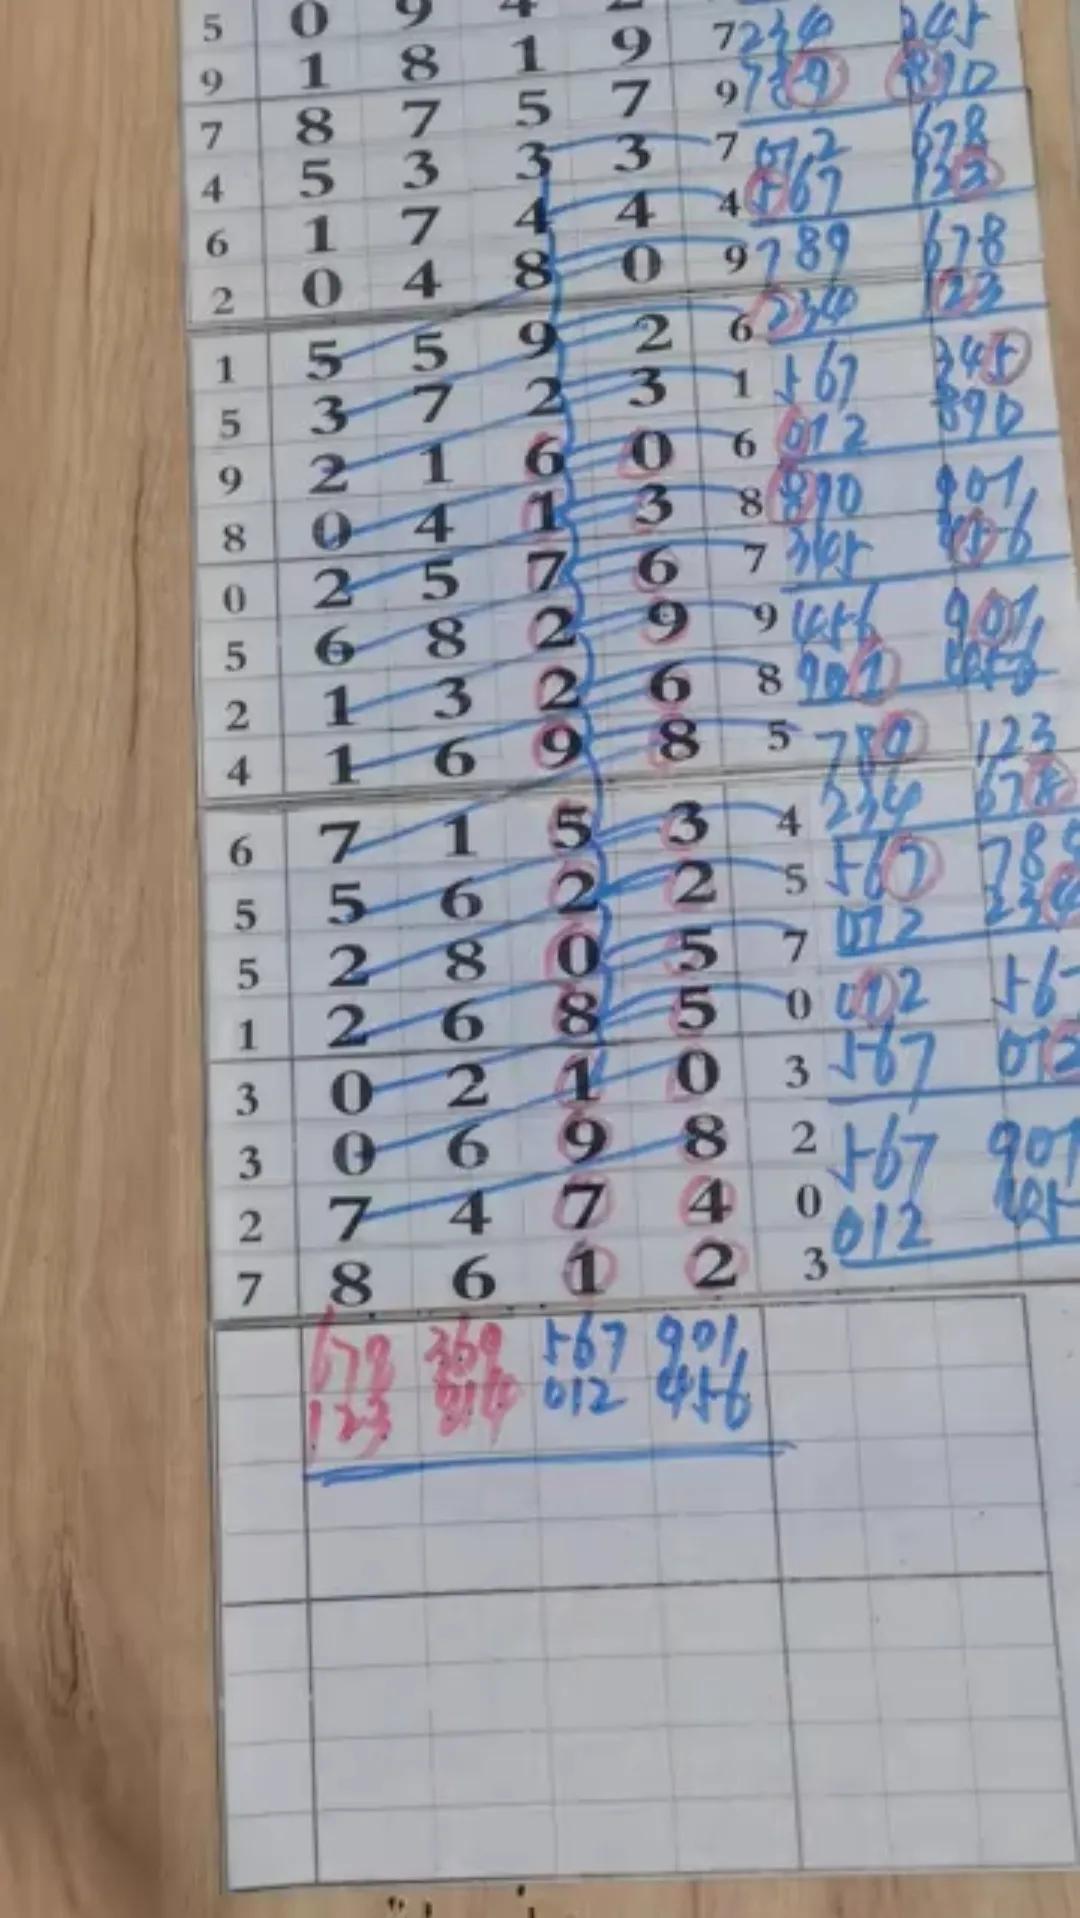 5 0 9 4 2
9 1 8 1 9 7 234 345
7 8 7 5 7 9 789 890
4 5 3 3 3 7 012 678
6 1 7 4 4 4 567 123
2 0 4 8 0 9 789 678
1 5 5 9 2 6 234 123
5 3 7 2 3 1 567 345
9 2 1 6 0 6 012 890
8 0 4 1 3 8 890 901
0 2 5 7 6 7 345 456
5 6 8 2 9 9 456 901
2 1 3 2 6 8 901 456
4 1 6 9 8 5 789 123
6 7 1 5 3 4 234 678
5 5 6 2 2 5 567 789
5 2 8 0 5 7 012 234
1 2 6 8 5 0 012 567
3 0 2 1 0 3 567 012
3 0 6 9 8 2 567 901
2 7 4 7 4 0 012 45
7 8 6 1 2 3
678 369 567 901
123 814 012 456